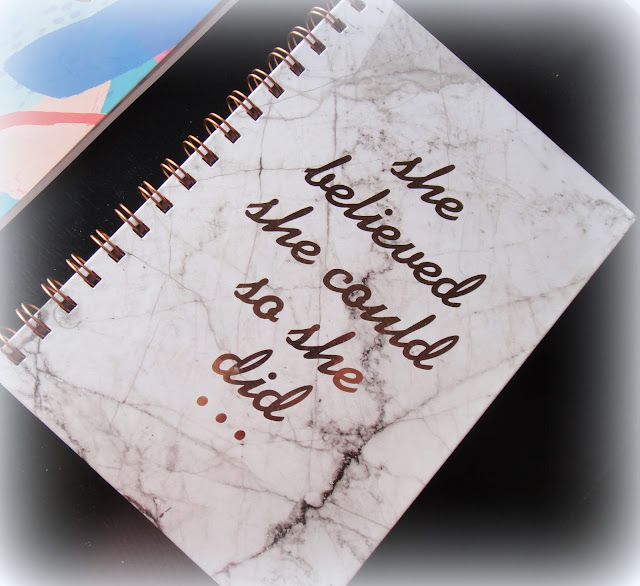 she
believed
she could
so she
did
...